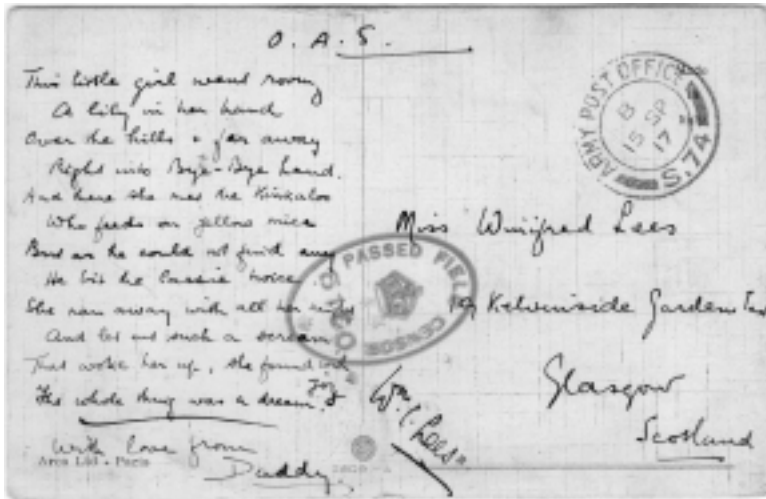 O.A.S.
This little girl went roving
A lily in her hand
Over the hills & far away
Right into Bye-Bye Land.
And there she met the Kinkaloo
Who feeds on yellow mice
But as he could not find any
He bit the Lassie twice.
She ran away with all her might
And let out such a scream
That woke her up, she found with joy
The whole thing was a dream.
With love from
Daddy.
Arco Ltd - Paris
ARMY POST OFFICE
B
15 SP
17
S.74
PASSED FIELD
CENSOR
Miss Winifred Lees
19 Kelvinside Gardens
Glasgow
Scotland
Wm. C. Lees